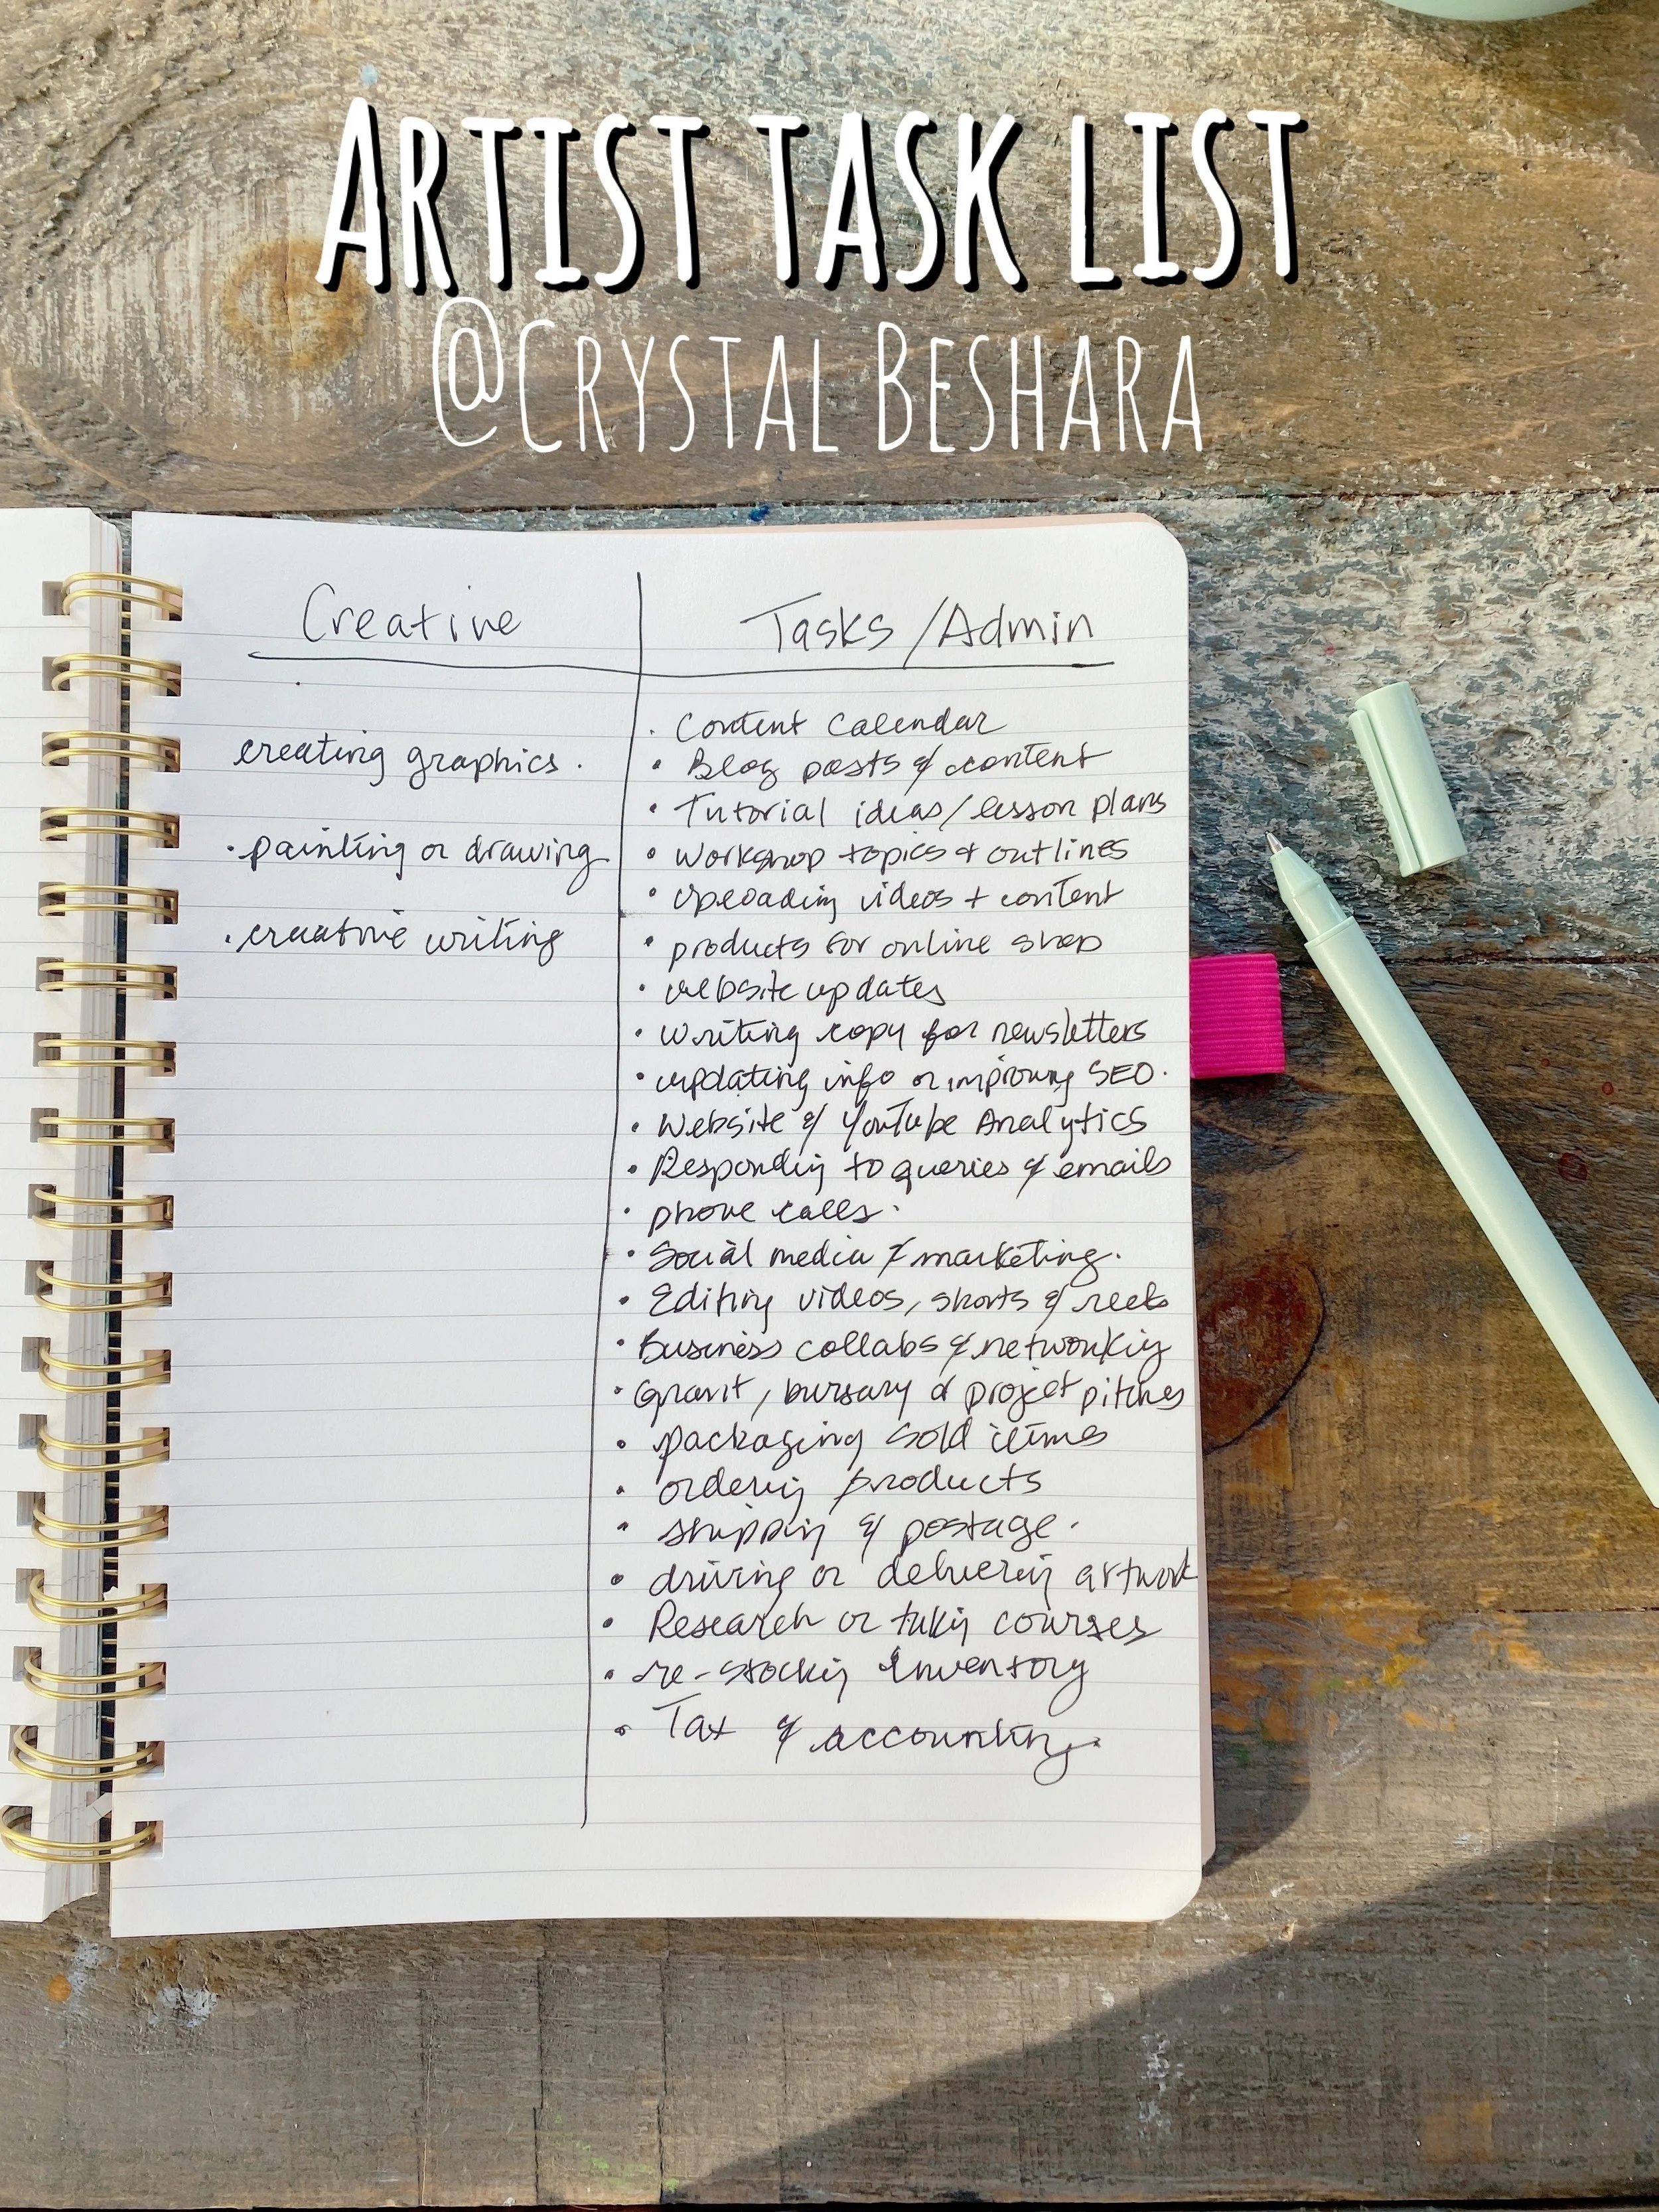 ARTIST TASK LIST
@CRYSTAL BESHARA
Creative
creating graphics.
· painting or drawing
· creative writing
Tasks/Admin
· Content Calendar
· Blog posts & content
· Tutorial ideas/lesson plans
· Workshop topics + outlines
· Uploading videos + content
· products for online shop
· website updates
· Writing copy for newsletters
· updating info or improving SEO.
· Website & YouTube Analytics
· Responding to queries & emails
· phone calls.
· Social media & marketing.
· Editing videos, shorts & reels
· Business collabs & networking
· Grant, bursary & project pitches
· packaging sold items
· ordering products
· shipping & postage.
· driving or delivering artwork
· Research or taking courses
· re-stocking inventory
· Tax & accounting.